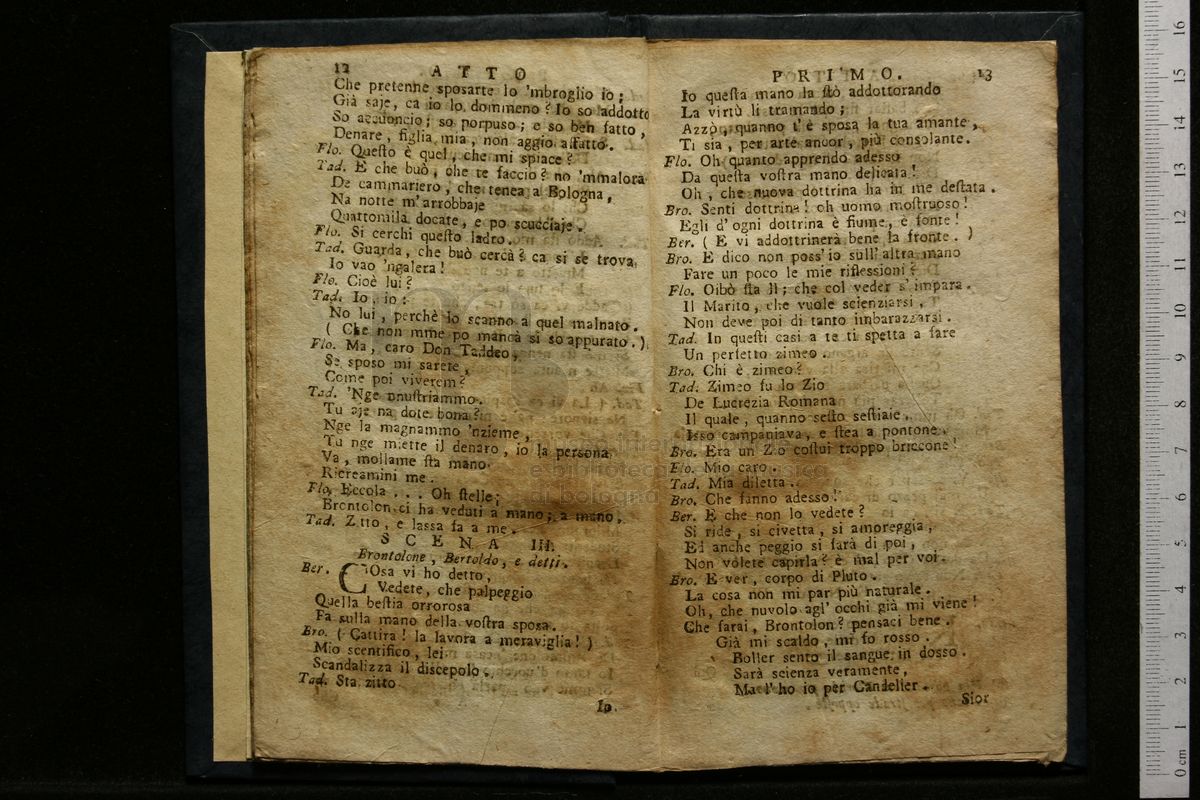 12 ATTO
Che pretenne sposarte lo 'mbroglio io;
Già saje, ca io lo dommeno? Io so addotto
So accuoncio; so porpuso; e so ben fatto,
Denare, figlia mia, non aggio affatto.
Flo. Questo è quel, che mi spiace?
Tad. E che buò, che te faccio? no 'mmalora
De cammariero, che tenea a Bologna,
Na notte m'arrobbaje
Quattomila docate, e po scucciaje.
Flo. Si cerchi questo ladro.
Tad. Guarda, che buò cercà? ca si se trova,
Io vao 'ngalera!
Flo. Cioè lui?
Tad. Io, io:
No lui, perchè lo scanno a quel malnato.
( Che non mme po mancà si so appurato. )
Flo. Ma, caro Don Taddeo,
Se sposo mi sarete,
Come poi viverem?
Tad. 'Nge nnustriammo.
Tu aje na dote bona?
Nge la magnammo 'nzieme,
Tu nge miette il denaro, io la persona,
Va, mollame sta mano.
Ricreamini me.
Flo. Eccola ... Oh stelle;
Brontolon ci ha veduti a mano, a mano.
Tad. Zitto, e lassa fa a me.
SCENA III.
Brontolone, Bertoldo, e detti.
Ber. COsa vi ho detto,
Vedete, che palpeggio
Quella bestia orrorosa
Fa sulla mano della vostra sposa.
Bro. ( Cattira! la lavora a meraviglia! )
Mio scentifico, lei
Scandalizza il discepolo.
Tad. Sta zitto
Io
PRIMO. 13
Io questa mano la stò addottorando
La virtù li tramando;
Azzò, quanno t'è sposa la tua amante,
Ti sia, per arte ancor, più consolante.
Flo. Oh quanto apprendo adesso
Da questa vostra mano delicata!
Oh, che nuova dottrina ha in me destata.
Bro. Senti dottrina! oh uomo mostruoso!
Egli d'ogni dottrina è fiume, è fonte!
Ber. ( E vi addottrinerà bene la fronte. )
Bro. E dico non poss'io sull'altra mano
Fare un poco le mie riflessioni?
Flo. Oibò sta lì; che col veder s'impara.
Il Marito, che vuole scienziarsi,
Non deve poi di tanto imbarazzarsi.
Tad. In questi casi a te ti spetta a fare
Un perfetto zimeo.
Bro. Chi è zimeo?
Tad. Zimeo fu lo Zio
De Lucrezia Romana
Il quale, quanno sesto sestiaie,
Isso campaniava, e stea a pontone.
Bro. Era un Zio costui troppo briccone!
Flo. Mio caro.
Tad. Mia diletta.
Bro. Che fanno adesso!
Ber. E che non lo vedete?
Si ride, si civetta, si amoreggia,
Ed anche peggio si farà di poi,
Non volete capirla? è mal per voi.
Bro. E ver, corpo di Pluto.
La cosa non mi par più naturale.
Oh, che nuvolo agl' occhi già mi viene!
Che farai, Brontolon? pensaci bene.
Già mi scaldo, mi fo rosso.
Boller sento il sangue in dosso.
Sarà scienza veramente,
Ma l'ho io per Candelier.
Sior